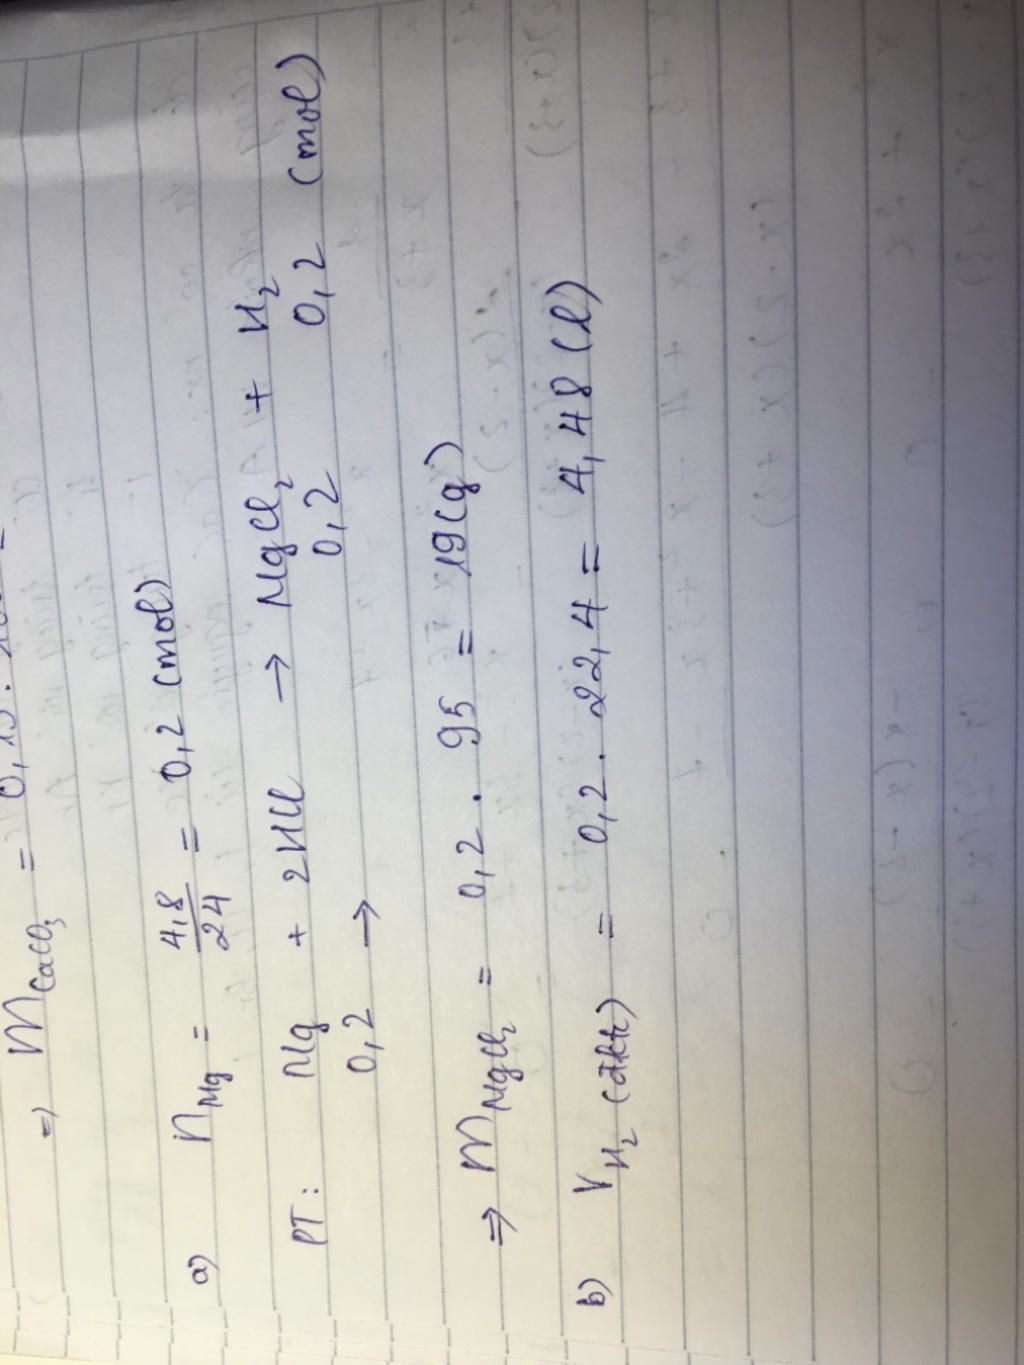 =) mCaCO₃ =
a) nMg = 4,8/24 = 0,2 (mol)
PT: Mg + 2HCl → MgCl₂ + H₂
0,2 → 0,2 0,2 (mol)
=> mMgCl₂ = 0,2 . 95 = 19(g)
b) VH₂ (đktc) = 0,2 . 22,4 = 4,48 (l)